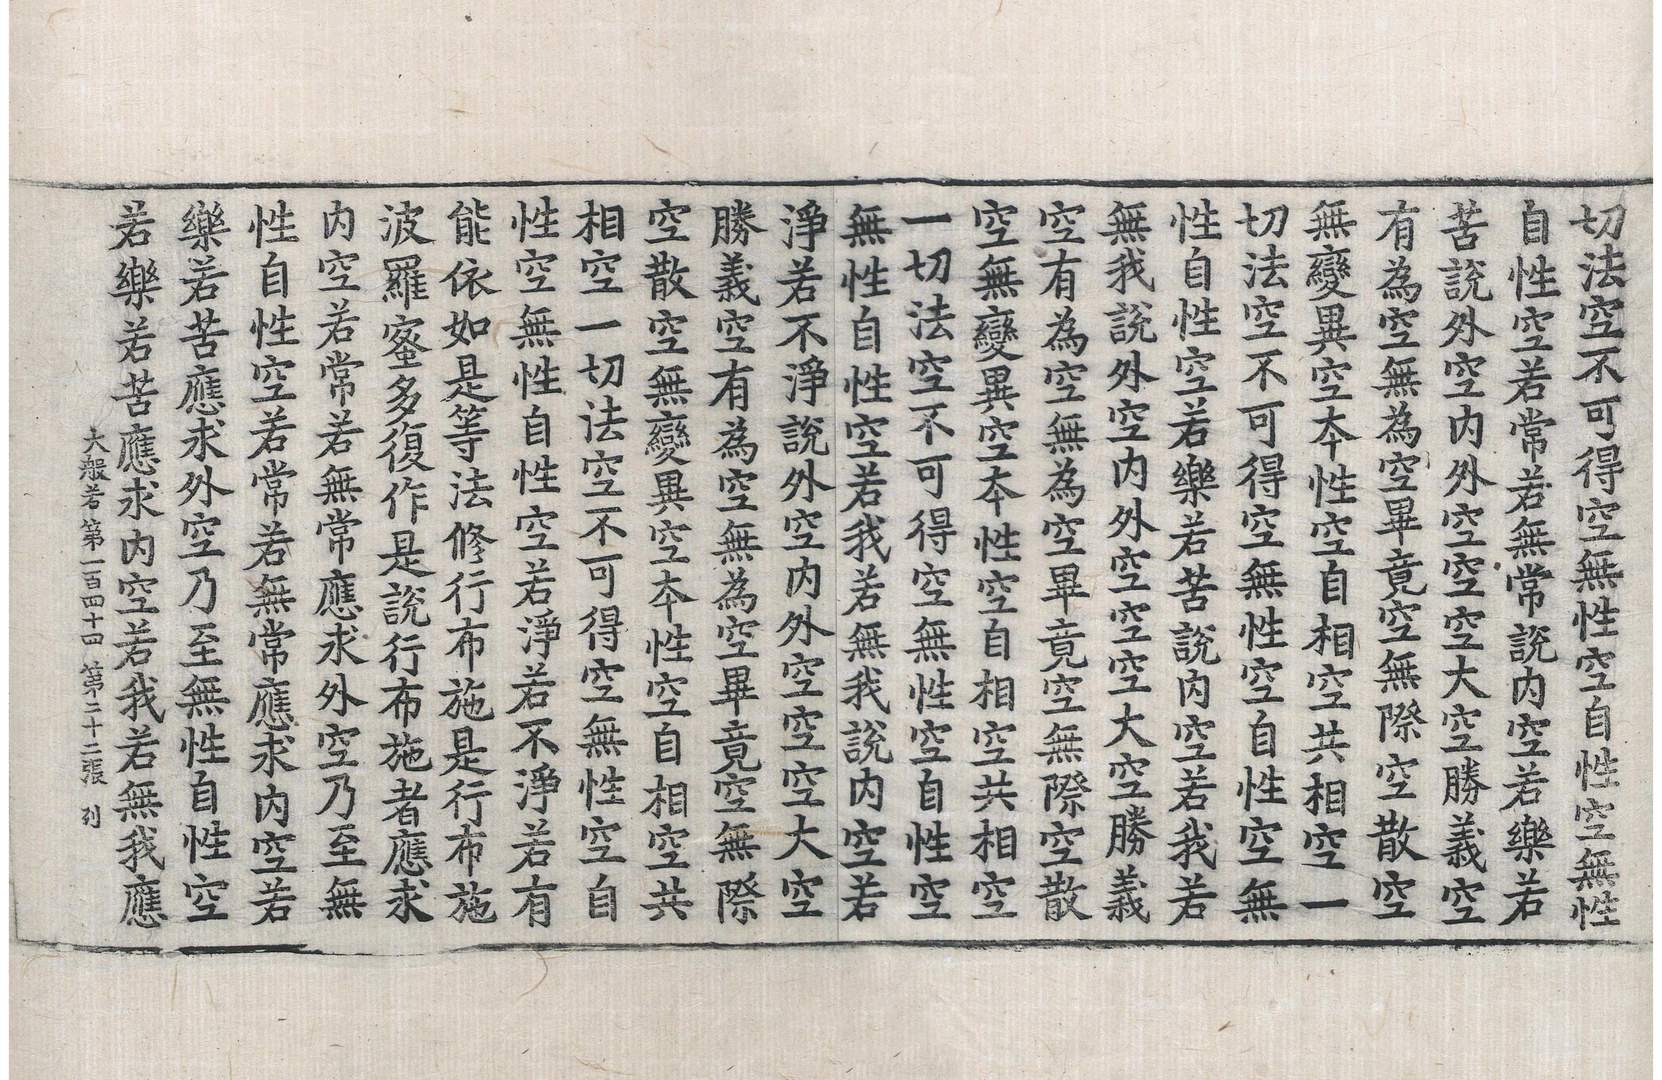 切法空不可得空無性空自性空無性
自性空若常若無常說内空若樂若
苦說外空内外空空空大空勝義空
有為空無為空畢竟空無際空散空
無變異空本性空自相空共相空一
切法空不可得空無性空自性空無
性自性空若樂若苦說内空若我若
無我說外空内外空空空大空勝義
空有為空無為空畢竟空無際空散
空無變異空本性空自相空共相空
一切法空不可得空無性空自性空
無性自性空若我若無我說内空若
淨若不淨說外空内外空空空大空
勝義空有為空無為空畢竟空無際
空散空無變異空本性空自相空共
相空一切法空不可得空無性空自
性空無性自性空若淨若不淨若有
能依如是等法修行布施是行布施
波羅蜜多復作是說行布施者應求
内空若常若無常應求外空乃至無
性自性空若常若無常應求内空若
樂若苦應求外空乃至無性自性空
若樂若苦應求内空若我若無我應
大般若第一百四十四 第二十二張 列